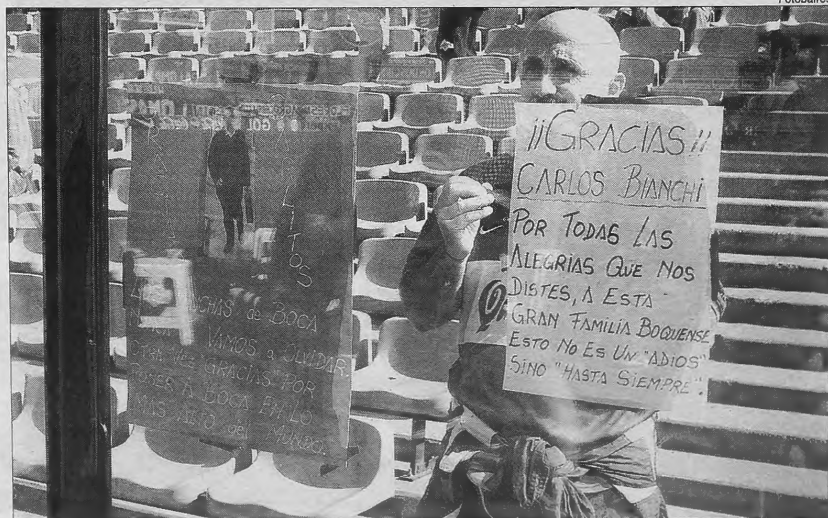 Fotobaires
GRACIAS
CARLITOS
HINCHAS de BOCA
VAMOS a OLVIDAR.
OTRA VEZ GRACIAS POR
PONER A BOCA EN LO
MAS ALTO del MUNDO.
¡¡GRACIAS!!
CARLOS BIANCHI
POR TODAS LAS
ALEGRIAS QUE NOS
DISTES, A ESTA
GRAN FAMILIA BOQUENSE
ESTO NO ES UN "ADIOS"
SINO "HASTA SIEMPRE".